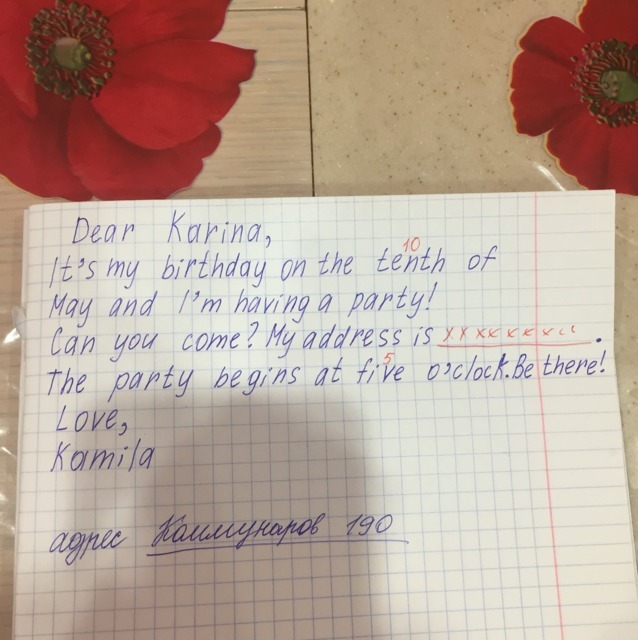 Dear Karina,
10
It's my birthday on the tenth of
May and I'm having a party!
Can you come? My address is xxxxxxxxx.
5
The party begins at five o'clock. Be there!
Love,
Kamila
адрес Коммунаров 190